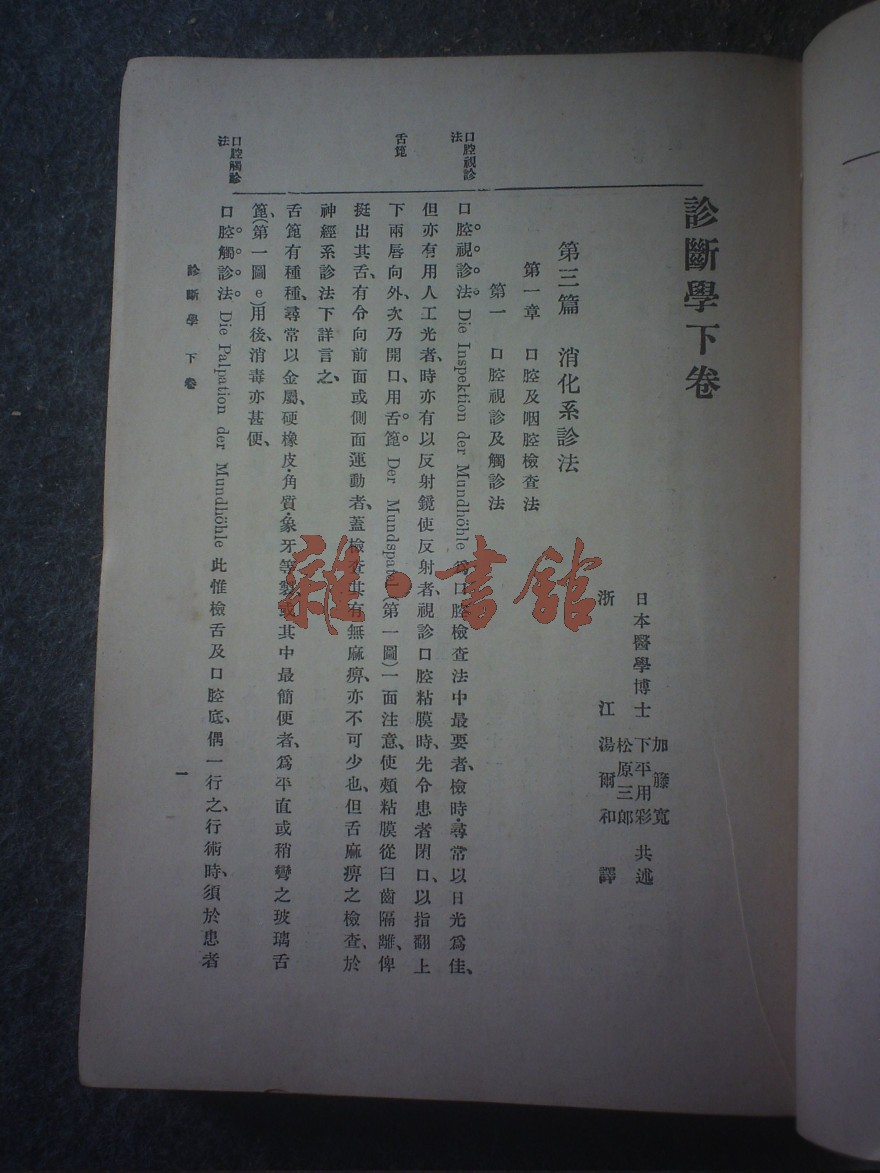 診斷學下卷
日本醫學博士 加藤寬 下平用彩 松原三郎 共述
浙江 湯爾和 譯
第三篇 消化系診法
第一章 口腔及咽腔檢查法
第一 口腔視診及觸診法
口腔視診法
口腔視診法 Die Inspektion der Mundhöhle 爲口腔檢查法中最要者、檢時、尋常以日光爲佳、
但亦有用人工光者、時亦有以反射鏡使反射者、視診口腔粘膜時、先令患者閉口、以指翻上
舌篦
下兩唇向外、次乃開口、用舌篦 Der Mundspatel (第一圖)一面注意、使頰粘膜從臼齒隔離、俾
挺出其舌、有令向前面或側面運動者、蓋檢查其有無麻痹、亦不可少也、但舌麻痹之檢查、於
神經系診法下詳言之、
舌篦有種種、尋常以金屬、硬橡皮・角質・象牙等製、或其中最簡便者、爲平直或稍彎之玻璃舌
篦、(第一圖e)用後、消毒亦甚便、
口腔觸診法
口腔觸診法 Die Palpation der Mundhöhle 此惟檢舌及口腔底、偶一行之、行術時、須於患者
診斷學 下卷
一
雜・書館